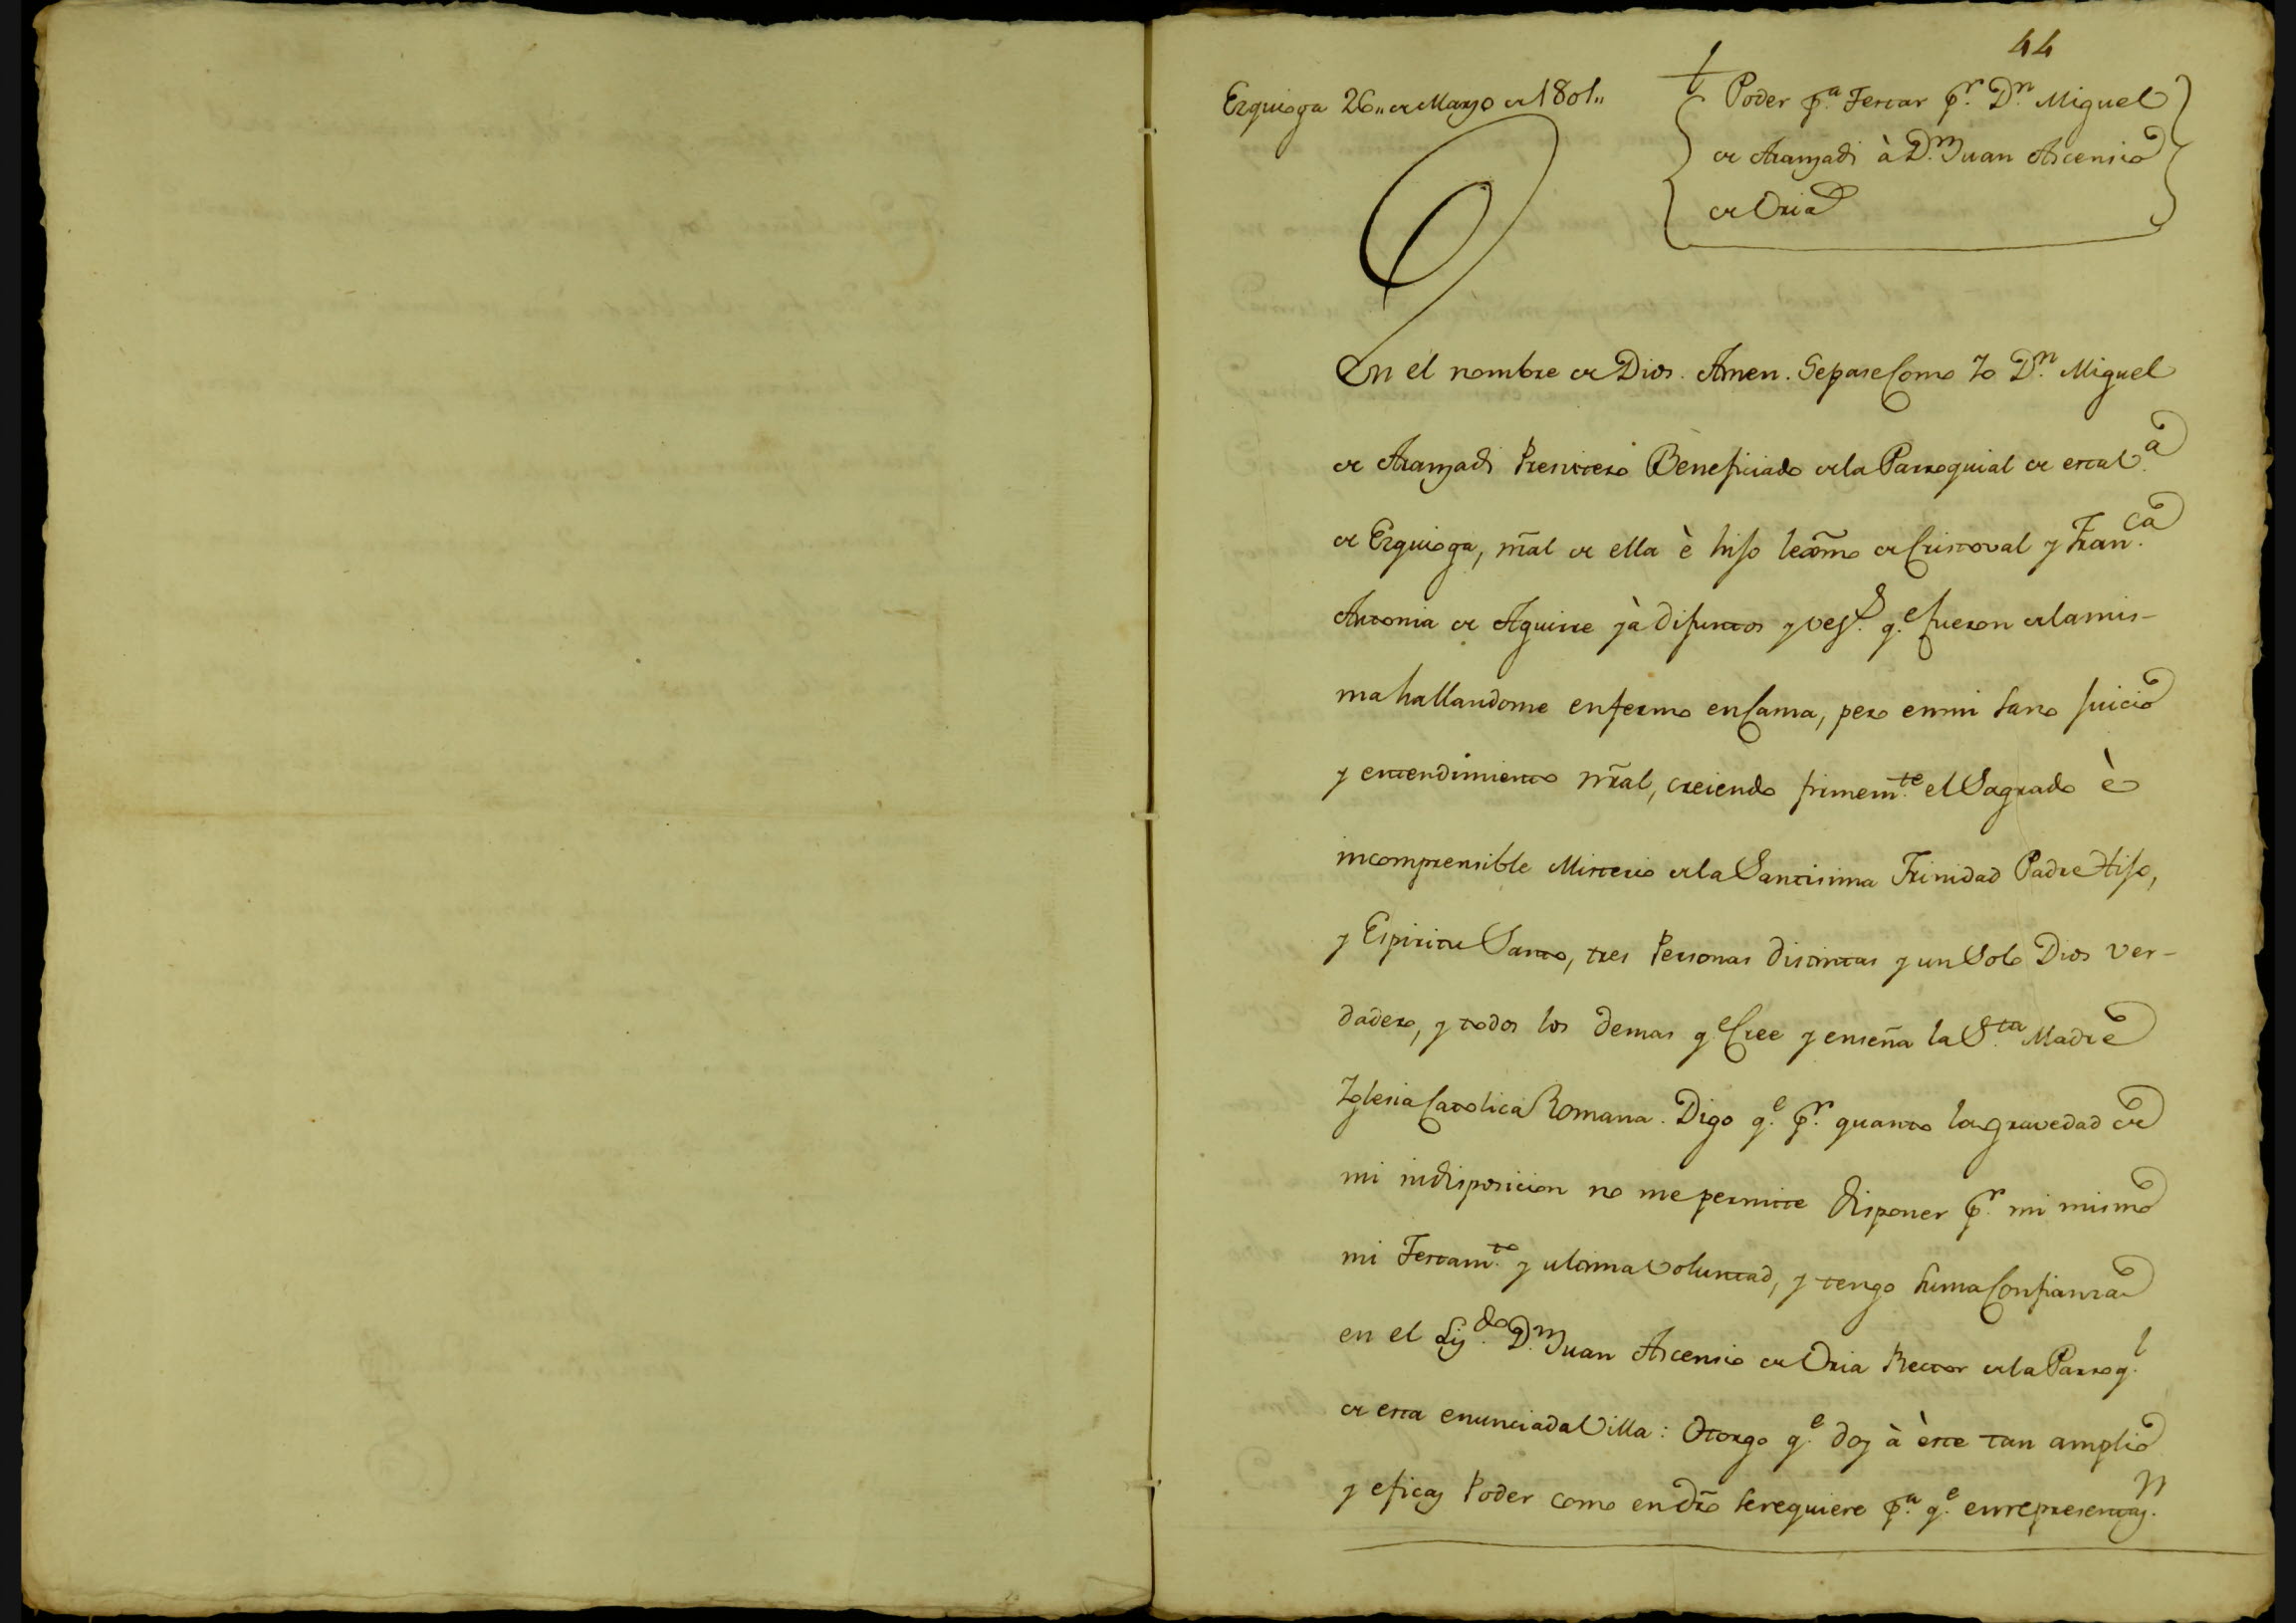 44
Ezquioga 26,, de Mayo de 1801,,
Poder p.ª Testar p.r D.n Miguel
de Aranzadi à D.n Juan Ascensio
de Oria
En el nombre de Dios. Amen. Sepase Como Yo D.n Miguel
de Aranzadi Presvitero Beneficiado de la Parroquial de esta V.ª
de Ezquioga, ñral de ella è hijo lexmo de Cristoval y Fran.ca
Antonia de Aguirre yà difuntos y vez.s q.e fueron de la mis-
ma hallandome enfermo en Cama, pero en mi sano juicio
y entendimiento ñral, creiendo firmem.te el Sagrado è
incomprensible Misterio de la Santisima Trinidad Padre Hijo,
y Espiritu Santo, tres Personas distintas y un Solo Dios ver-
dadero, y todos los demas q.e Cree y enseña la S.ta Madre
Yglesia Catolica Romana. Digo q.e p.r quanto la gravedad de
mi indisposicion no me permite disponer p.r mi mismo
mi Testam.to y ultima voluntad, y tengo suma Confianza
en el Liz.do D.n Juan Ascensio de Oria Rector de la Parroq.l
de esta enunciada Villa: Otorgo q.e doy à èste tan amplio
y eficaz Poder como en dro se requiere p.ª q.e en representaz.n